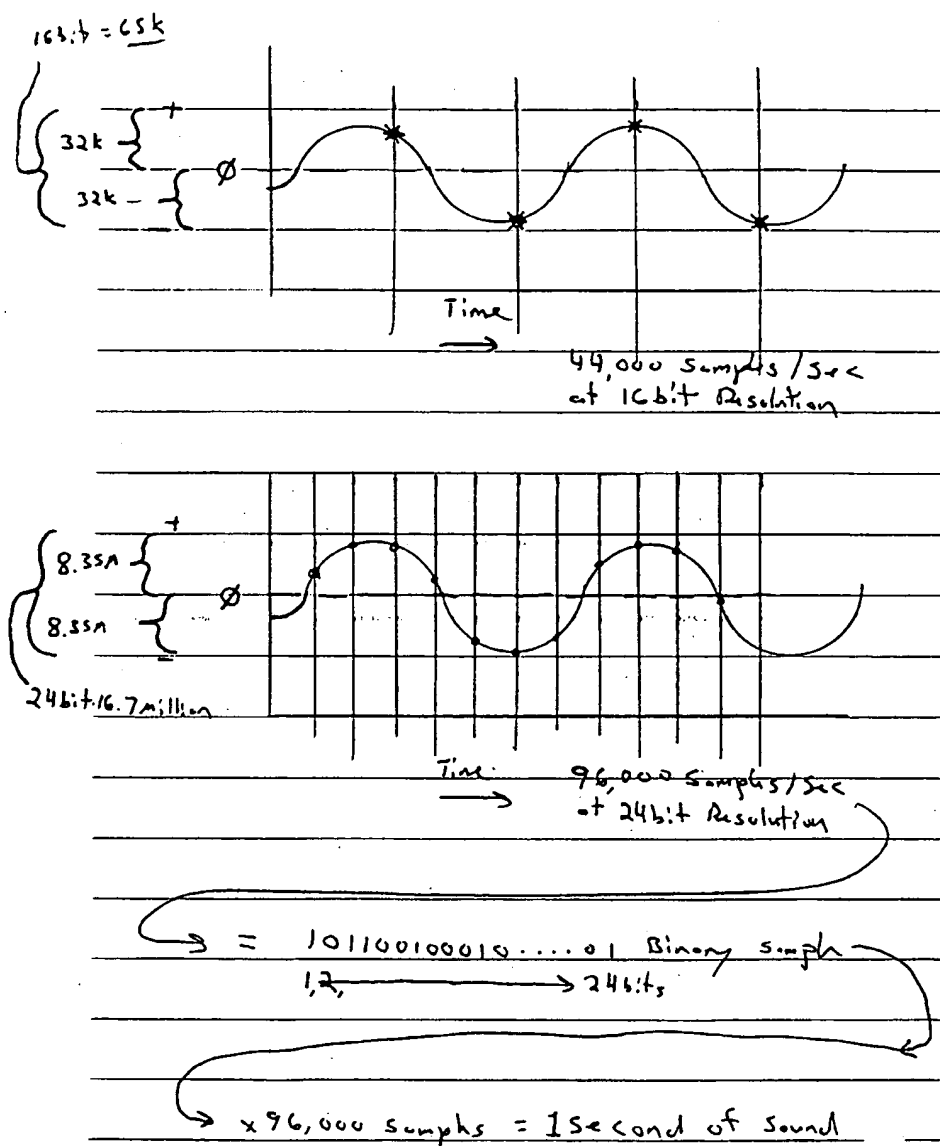 16bit = 65k
+
32k
Ø
32k
–
Time
44,000 Samples/Sec
at 16bit Resolution
+
8.35M
Ø
8.35M
–
24bit·16.7million
Time
96,000 Samples/Sec
at 24bit Resolution
= 101100100010.....01 Binary sample
1,2, 24bits
x 96,000 samples = 1 Second of Sound